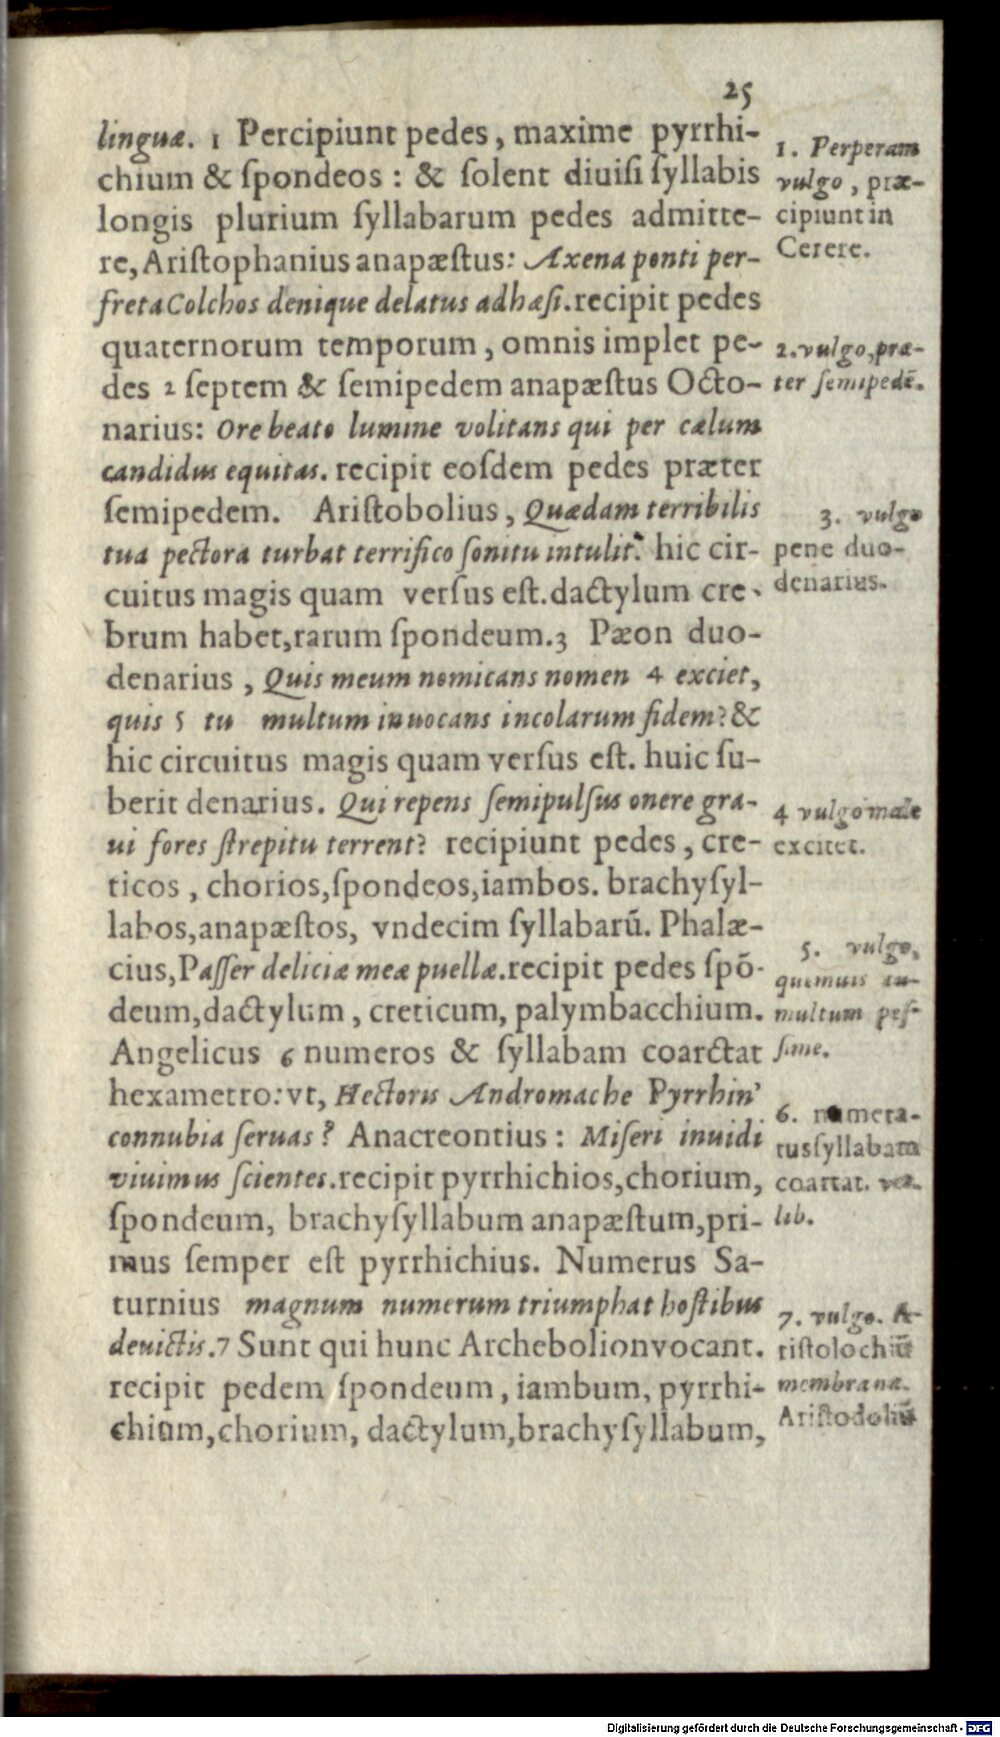 25
linguæ. 1 Percipiunt pedes, maxime pyrrhi-
chium & ſpondeos : & ſolent diuiſi ſyllabis
longis plurium ſyllabarum pedes admitte-
re, Ariſtophanius anapæſtus: Axena ponti per-
freta Colchos denique delatus adhæſi. recipit pedes
quaternorum temporum, omnis implet pe-
des 2 ſeptem & ſemipedem anapæſtus Octo-
narius: Ore beato lumine volitans qui per cælum
candidus equitas. recipit eoſdem pedes præter
ſemipedem. Ariſtobolius, Quædam terribilis
tua pectora turbat terrifico ſonitu intulit. hic cir-
cuitus magis quam verſus eſt. dactylum cre-
brum habet, rarum ſpondeum. 3 Pæon duo-
denarius, Quis meum nomicans nomen 4 exciet,
quis 5 tu multum inuocans incolarum fidem? &
hic circuitus magis quam verſus eſt. huic ſu-
berit denarius. Qui repens ſemipulſus onere gra-
ui fores ſtrepitu terrent? recipiunt pedes, cre-
ticos, chorios, ſpondeos, iambos. brachyſyl-
labos, anapæſtos, vndecim ſyllabarũ. Phalæ-
cius, Paſſer deliciæ meæ puellæ. recipit pedes ſpõ-
deum, dactylum, creticum, palymbacchium.
Angelicus 6 numeros & ſyllabam coarctat
hexametro: vt, Hectoris Andromache Pyrrhin'
connubia ſeruas? Anacreontius : Miſeri inuidi
viuimus ſcientes. recipit pyrrhichios, chorium,
ſpondeum, brachyſyllabum anapæſtum, pri-
mus ſemper eſt pyrrhichius. Numerus Sa-
turnius magnum numerum triumphat hoſtibus
deuictis. 7 Sunt qui hunc Archebolion vocant.
recipit pedem ſpondeum, iambum, pyrrhi-
chium, chorium, dactylum, brachyſyllabum,
1. Perperam
vulgo, præ-
cipiunt in
Cerere.
2. vulgo, præ-
ter ſemipedē.
3. vulgo
pene duo-
denarius.
4 vulgo male
excitet.
5. vulgo,
quemuis in-
multum peſ-
ſime.
6. numera-
tus ſyllabam
coartat. vet.
lib.
7. vulgo. A-
riſtolochiũ
membrana.
Ariſtodoliũ